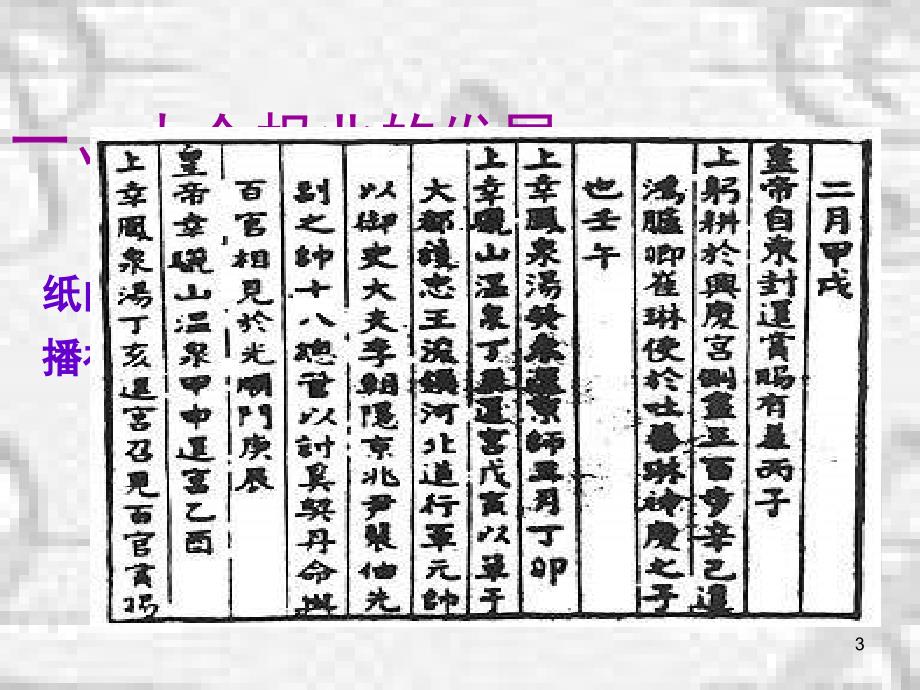 一、
的发展
纸
播
二月甲戌
皇帝自東封還賞賜有差丙子
上躬耕於興慶宮側盡三百步辛巳還
鴻臚卿崔琳使於吐蕃琳神慶之子
也壬午
上幸鳳泉湯癸未還京師五月丁卯
上幸驪山溫泉丁還宮戊寅以單于
大都護忠王浚領河北道行軍元帥
以御史大夫李朝隱京兆尹裴伷先
副之帥十八總管以討奚契丹命與
百官相見於光順門庚辰
皇帝幸驪山溫泉甲申還宮乙酉
上幸鳳泉湯丁亥還宮召見百官賞賜
3